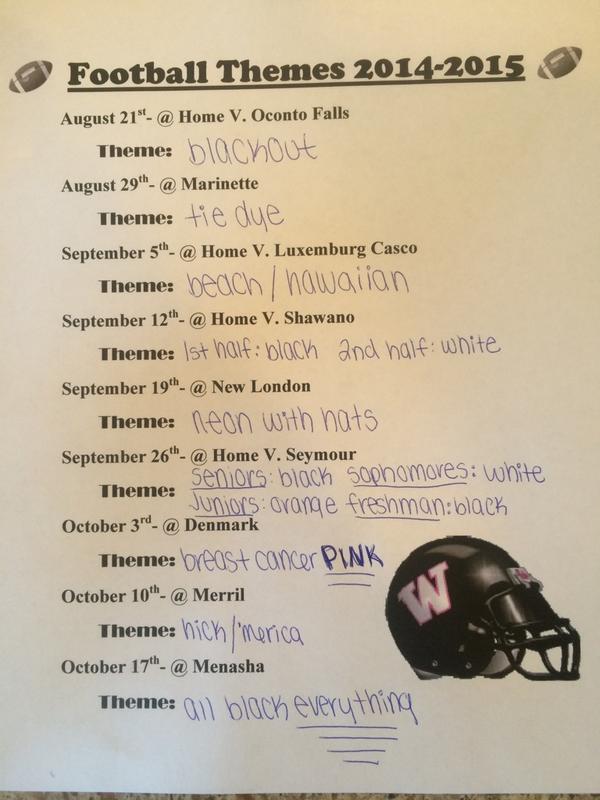 Football Themes 2014-2015
August 21st- @ Home V. Oconto Falls
Theme: blackout
August 29th- @ Marinette
Theme: tie dye
September 5th- @ Home V. Luxemburg Casco
Theme: beach / hawaiian
September 12th- @ Home V. Shawano
Theme: 1st half: black 2nd half: white
September 19th- @ New London
Theme: neon with hats
September 26th- @ Home V. Seymour
Theme: seniors: black sophomores: white
juniors: orange freshman: black
October 3rd- @ Denmark
Theme: breast cancer PINK
October 10th- @ Merril
Theme: hick/'merica
October 17th- @ Menasha
Theme: all black everything
W